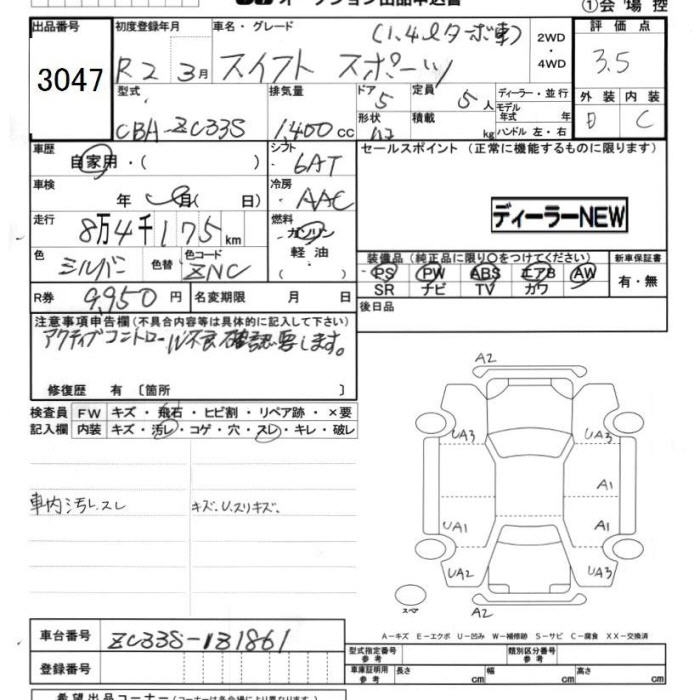 オークション出品申込書
①会場控
出品番号 初度登録年月 車名・グレード (1.4ℓターボ車) 2WD・4WD 評価点
3047 R2 3月 スイフト スポーツ 3.5
型式 排気量 ドア 5 定員 5人 ディーラー・並行 外装 内装
CBA-ZC33S 1,400cc 形状 積載 kg モデル年式 年式 D C
ハンドル 左・右
車歴 自家用・( ) シフト 6AT セールスポイント (正常に機能するものに限ります)
車検 年 月( 日) 冷房 AAC
ディーラーNEW
走行 8万4千175km 燃料 ガソリン
軽油
( )
色 シルバー 色替 色コード ZNC 装備品 (純正品に限り○をつけてください) 新車保証書
PS PW ABS エアB AW 有・無
SR ナビ TV カワ
R券 9,950円 名変期限 月 日 後日品
注意事項申告欄 (不具合内容等は具体的に記入して下さい)
アクティブコントロール不良確認要します。
修復歴 有 〔箇所 〕
検査員 FW キズ・飛石・ヒビ割・リペア跡・×要
記入欄 内装 キズ・汚レ・コゲ・穴・スレ・キレ・破レ
車内汚レ.スレ キズ.U.スリキズ.
A2
UA3 UA3
A1
UA1 A1
UA2 UA3
スペア A2
A-キズ E-エクボ U-凹み W-補修跡 S-サビ C-腐食 XX-交換済
車台番号 ZC33S-131861
型式指定番号 参考 類別区分番号 参考
登録番号 車庫証明用 参考 長さ cm 幅 cm 高さ cm
希望出品コーナー